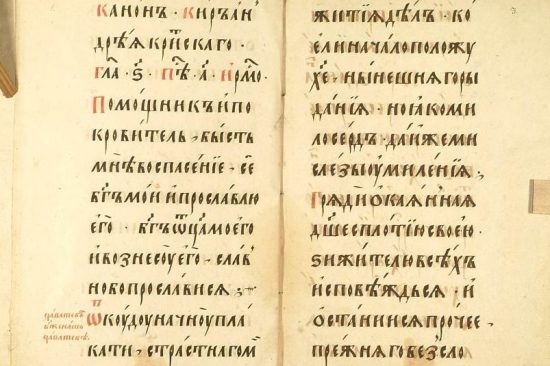 канонъ киръ ан
дрѣꙗ крⷭ҇искаго ·
гла ѕ · пѣ а · ирмо
Помощникъ и по
кровитель · бысть
мнѣ во спасенїе · се
бг҃ъ мои и прославлю
его · бг҃ъ ѿца моего
и вознесоу его · слав
но бо прославися :
Ѿкоудоу начноу пла
кати · страстнагомⷤ
житїꙗ дѣлъ · ко
ели начало положу
хе · нынешнꙗ горы
данїꙗ · но ꙗко ми
лосердъ даи же ми
слезы оумиленїꙗ ·
Грѧди окаꙗннаꙗ
дш҃е с плотїю своею ·
зижителю всѣхъ
исповѣждьсѧ · и
останисѧ прочее ·
прежнѧго безсло